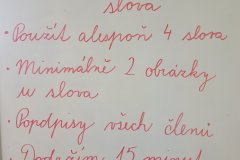 slova
• Použít alespoň 4 slova
• Minimálně 2 obrázky
u slova
• Popdpisy všech členů
• Dodržím 15 minut